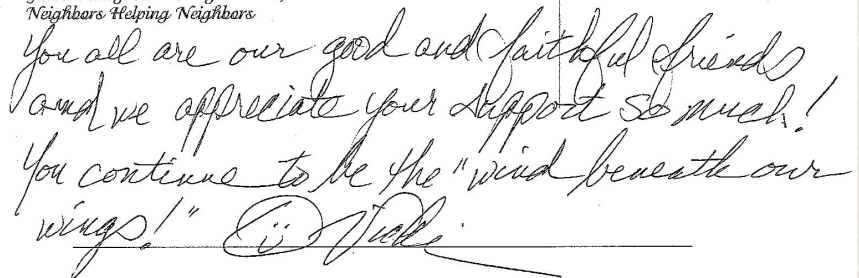 Neighbors Helping Neighbors
You all are our good and faithful friends
and we appreciate your support so much!
You continue to be the "wind beneath our
wings!" Vicki